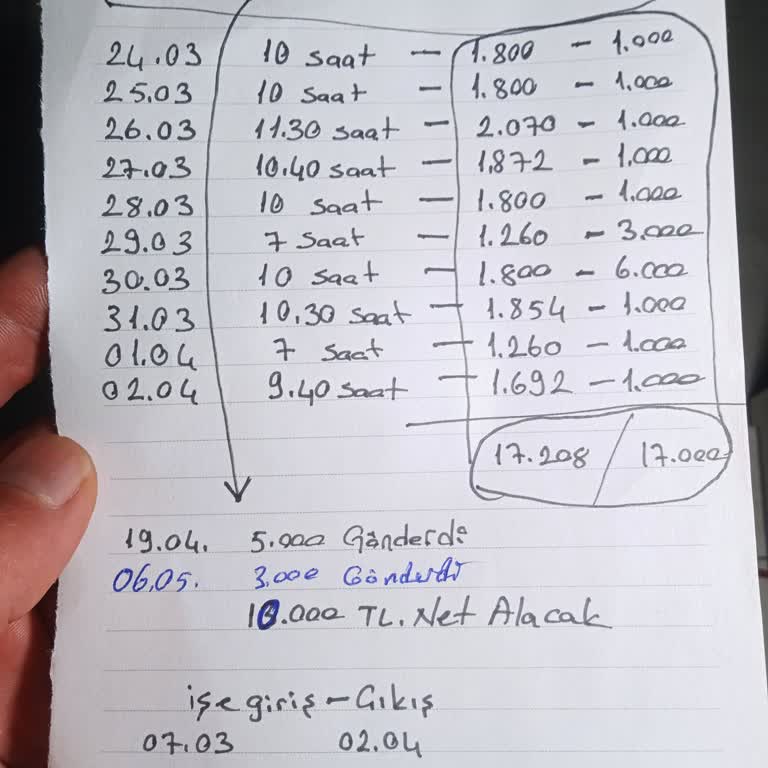 24.03 10 saat – 1.800 – 1.000
25.03 10 saat – 1.800 – 1.000
26.03 11.30 saat – 2.070 – 1.000
27.03 10.40 saat – 1.872 – 1.000
28.03 10 saat – 1.800 – 1.000
29.03 7 saat – 1.260 – 3.000
30.03 10 saat – 1.800 – 6.000
31.03 10.30 saat – 1.854 – 1.000
01.04 7 saat – 1.260 – 1.000
02.04 9.40 saat – 1.692 – 1.000
17.208 / 17.000
19.04. 5.000 Gönderdi
06.05. 3.000 Gönderdi
10.000 TL. Net Alacak
işe giriş – Çıkış
07.03 02.04